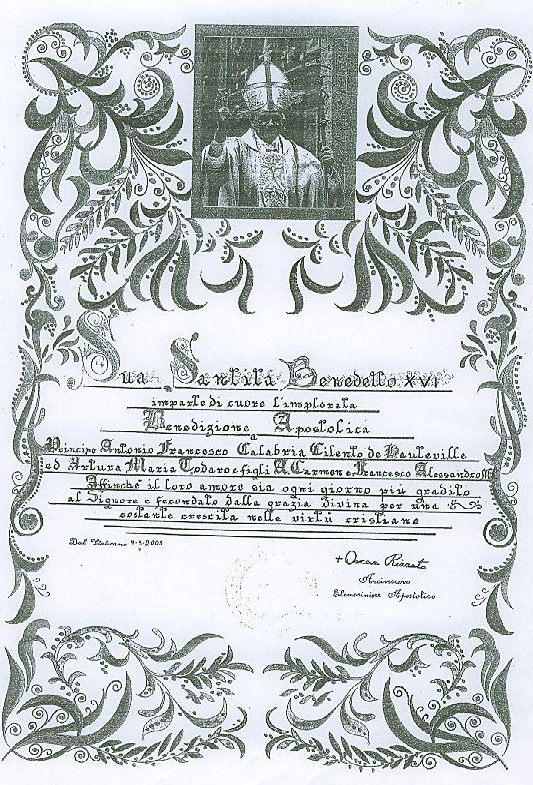 Sua Santità Benedetto XVI
imparte di cuore l'implorata
Benedizione Apostolica
a
Principe Antonio Francesco Calabria Cilento de Hauteville
ed Artura Maria Todaro e figli A. Carmen e Francesco Alessandro
Affinché il loro amore sia ogni giorno più gradito
al Signore e fecondato dalla grazia divina per una
costante crescita nelle virtù cristiane
Dal Vaticano
+ Oscar Rizzato
Arcivescovo
Elemosiniere Apostolico